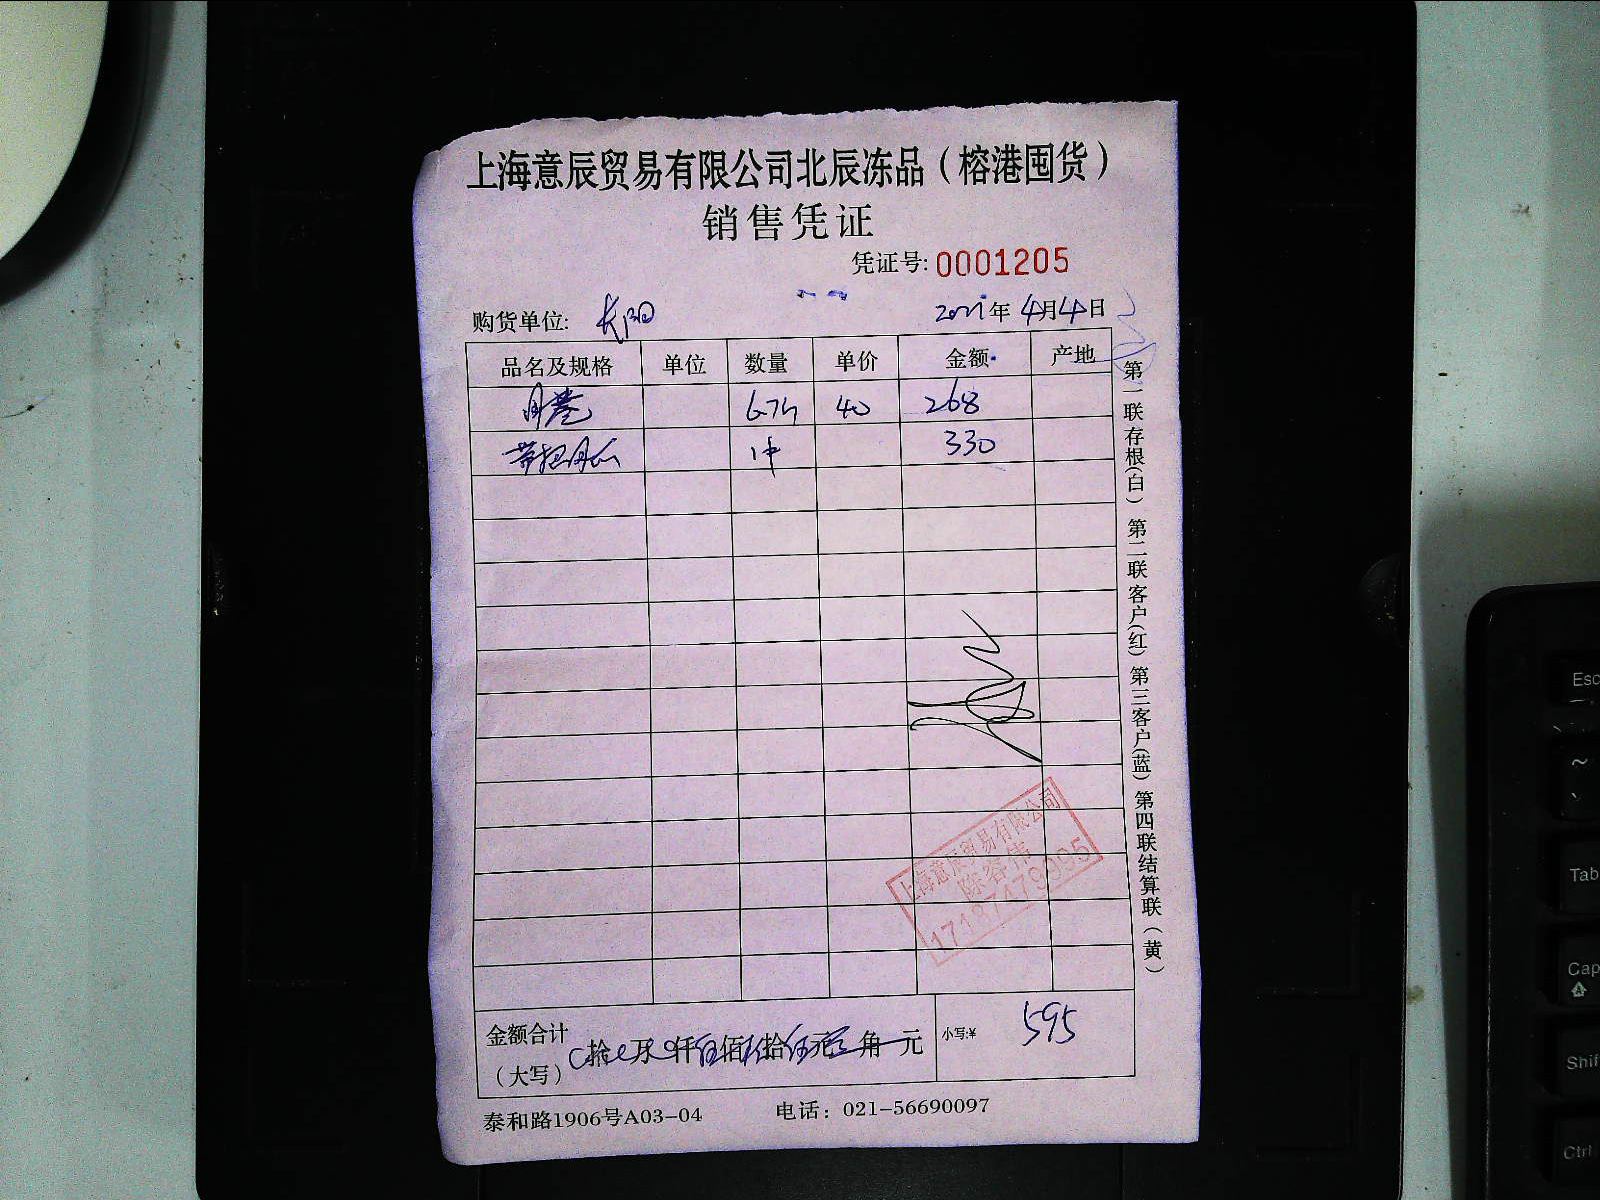 上海意辰贸易有限公司北辰冻品（榕港囤货）
销售凭证
凭证号: 0001205
购货单位: 长阳 2021年4月4日
品名及规格 单位 数量 单价 金额 产地
40 268
1件 330
上海意辰贸易有限公司
陈容伟
金额合计（大写） 拾 万 仟伍佰 拾伍元 角 元 小写:¥ 595
泰和路1906号A03-04 电话：021-56690097
第一联存根(白) 第二联客户(红) 第三客户(蓝) 第四联结算联（黄）
Esc
~
Tab
Cap
Shif
Ctrl